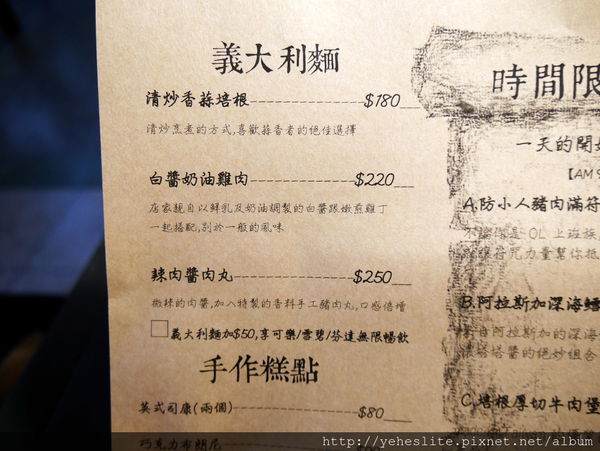 義大利麵
清炒香蒜培根 $180
清炒烹煮的方式,喜歡蒜香者的絕佳選擇
白醬奶油雞肉 $220
店家親自以鮮乳及奶油調製的白醬跟嫩煎雞丁
一起搭配,別於一般的風味
辣肉醬肉丸 $250
微辣的肉醬,加入特製的香料手工豬肉丸,口感倍增
義大利麵加$50,享可樂/雪碧/芬達無限暢飲
手作糕點
英式司康(兩個) $80
巧克力布朗尼
時間限
一天的開始
【AM 9
A.防小人豬肉滿符
不論你是 OL 上班族,
B.阿拉斯加深海鱈
自阿拉斯加的深海
塔塔醬的絕妙組合
C.培根厚切牛肉堡
http://yeheslite.pixnet.net/album